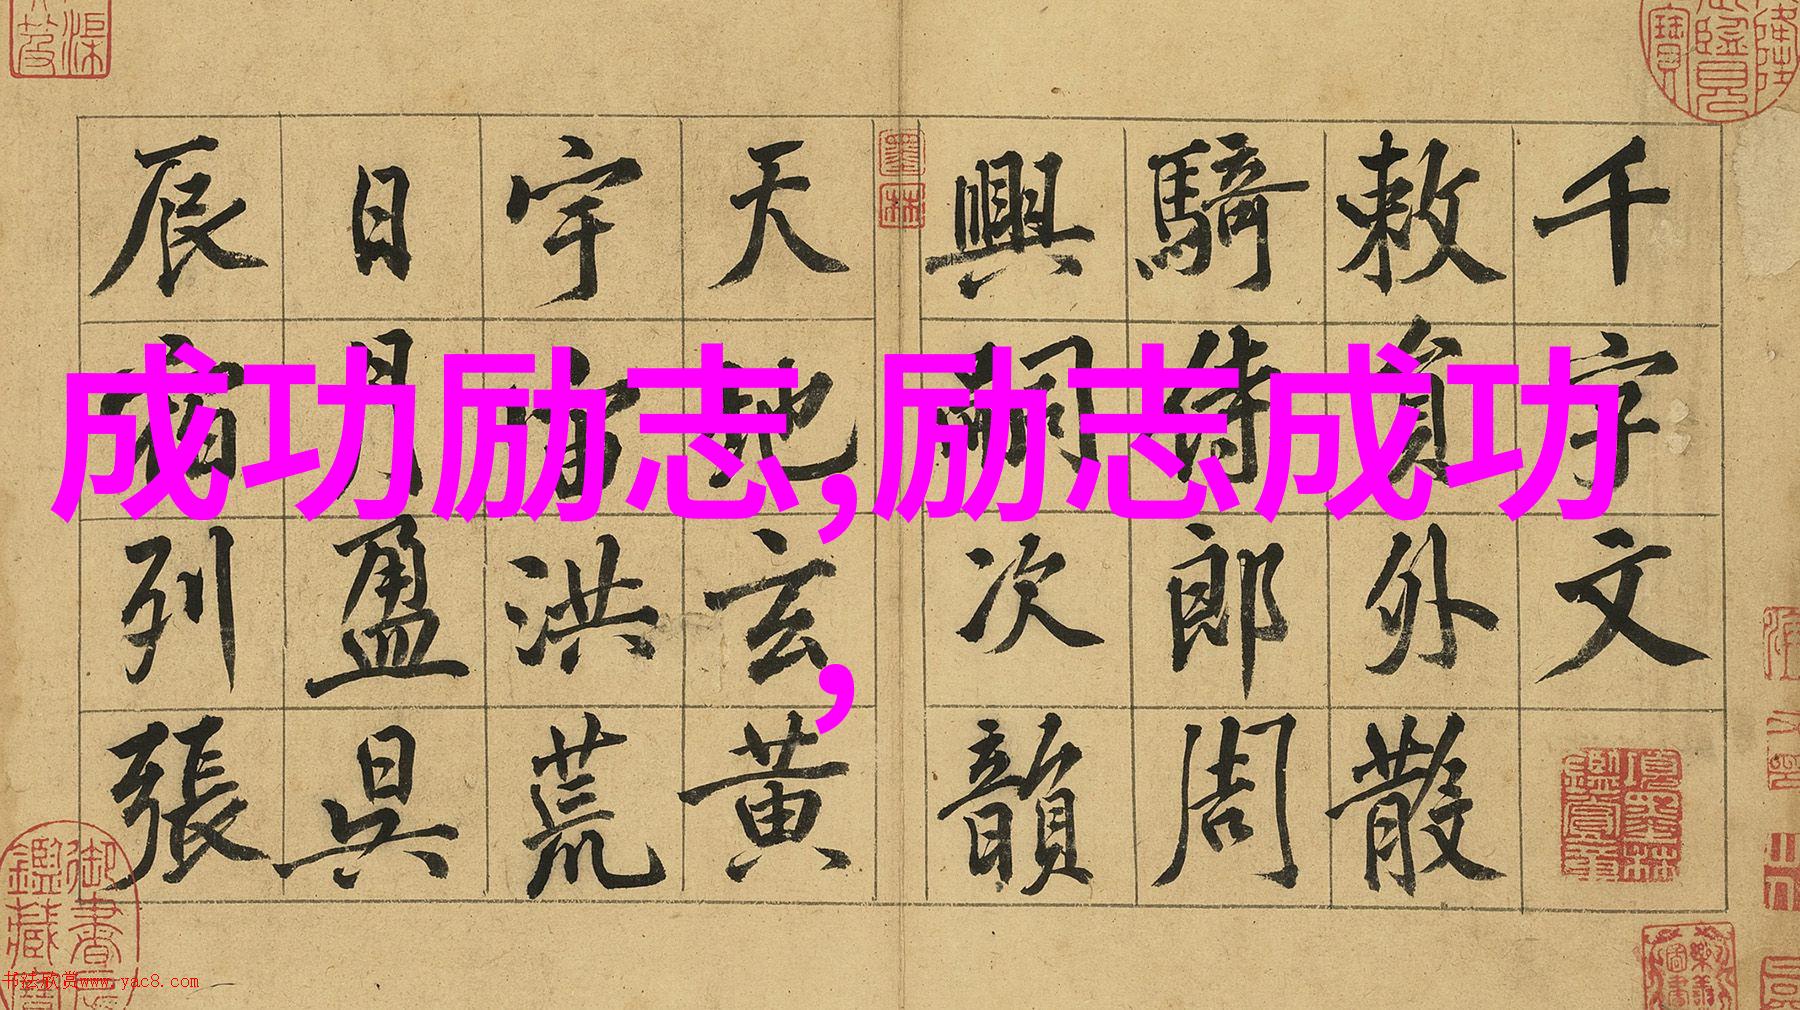 成功励志,励志成功
,
千字文
敕員外散
騎侍郎周
興嗣次韻
天地玄黃
宇宙洪荒
日月盈昃
辰宿列張
墨林
項墨林鑑賞章
书法欣赏www.yac8.com